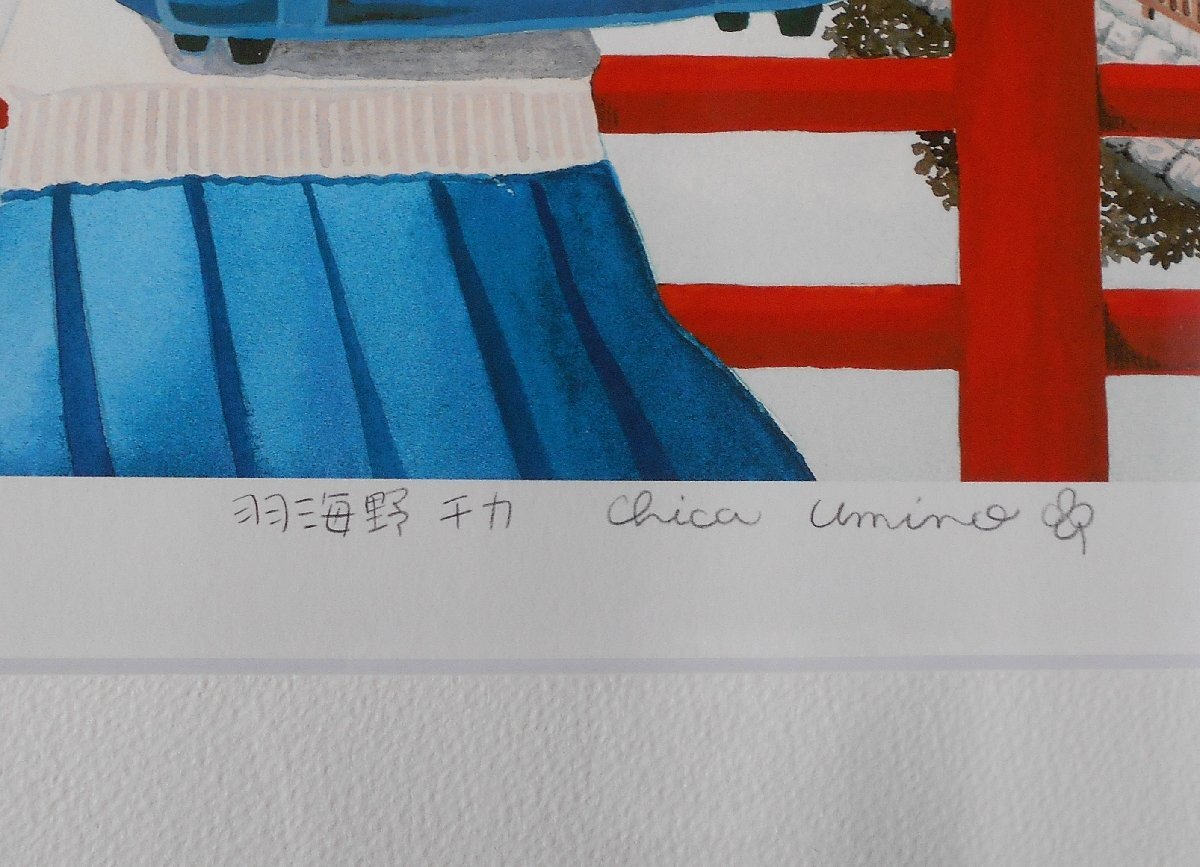 羽海野 チカ Chica Umino